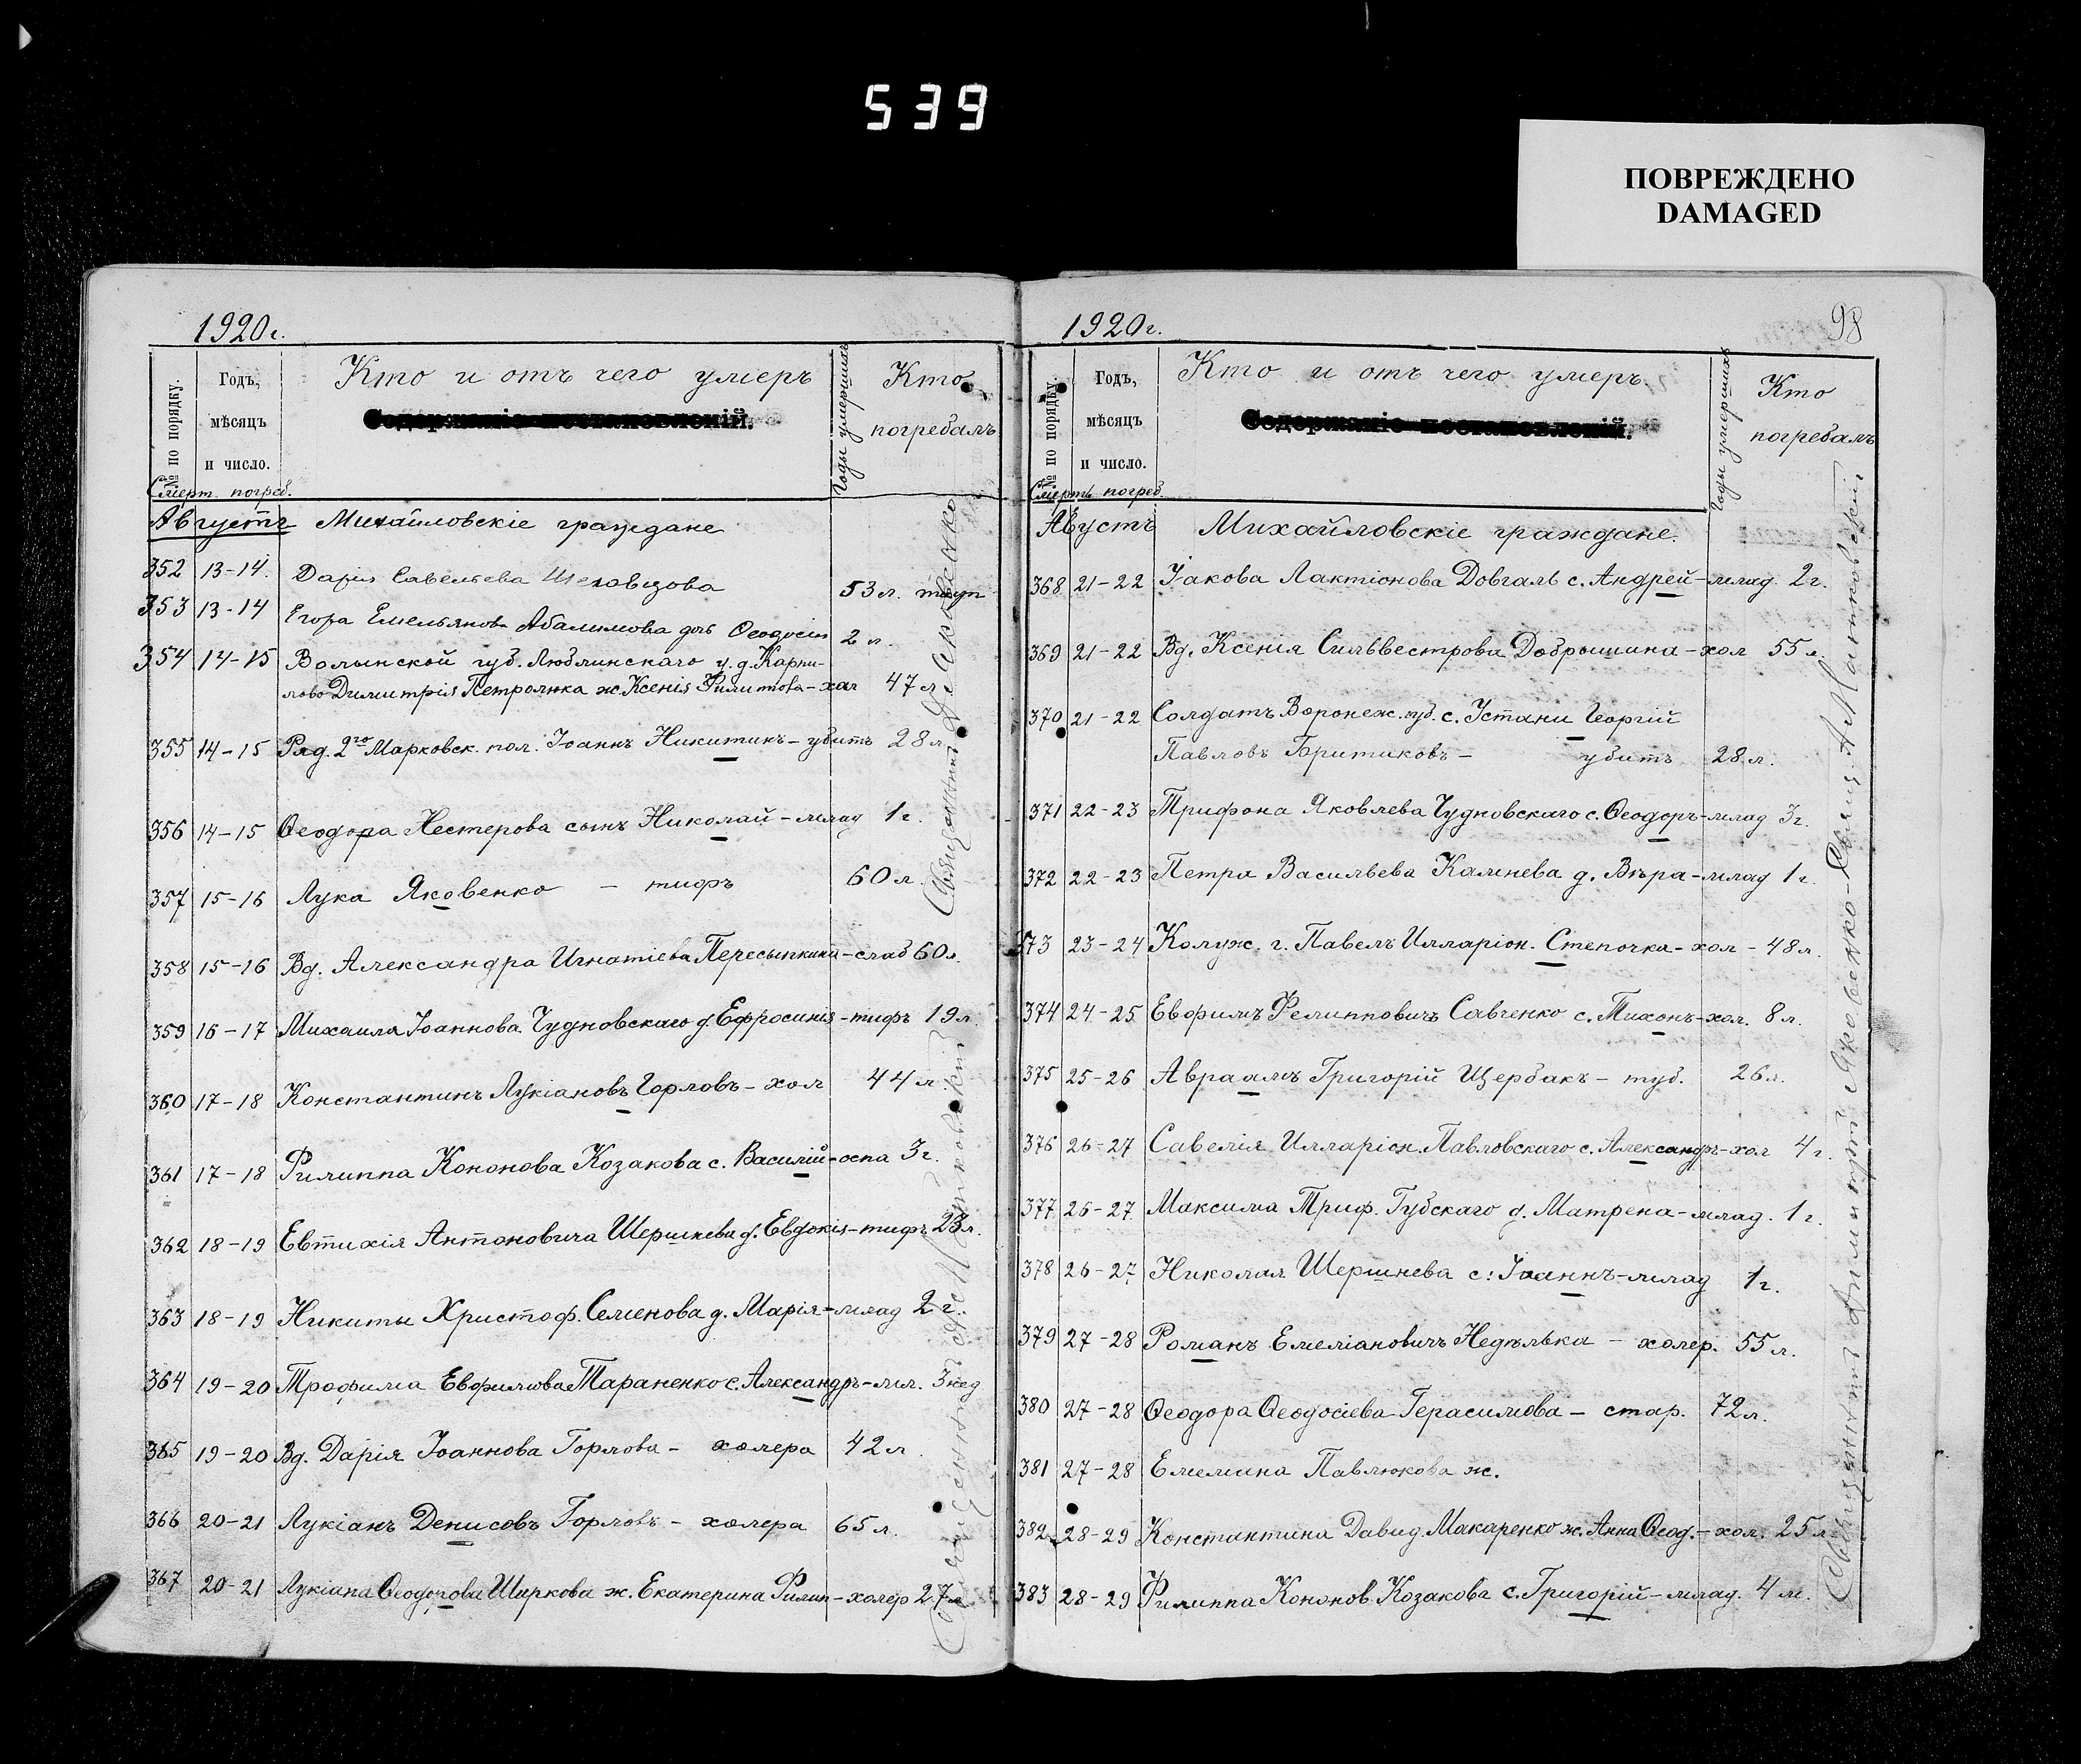 539
ПОВРЕЖДЕНО
DAMAGED
1920 г.
№ по порядку.
Годъ,
мѣсяцъ
и число.
Смерт. погреб.
Кто и отъ чего умеръ
Содержаніе постановленій.
Годы умершихъ
Кто
погребалъ
Августъ Михайловскіе граждане
352 13-14. Дарія Савельева 53 л.
353 13-14 Егора Емельянова Абалимова дочь Ѳеодосія 2 л.
354 14-15 Волынской губ. Люблинскаго у. д. Карпи-
лово Димитрія Петролюка ж. Ксенія Филипова-хол 47 л
355 14-15 Ряд. 2го Марковск. пол. Іоаннъ Никитинъ - убитъ 28 л
356 14-15 Ѳеодора Нестерова сынъ Николай - млад 1 г.
357 15-16 Лука Яковенко - тифъ 60 л.
358 15-16 Вд. Александра Игнатіева Пересыпкина - слаб 60 л.
359 16-17 Михаила Іоаннова Чудновскаго д. Ефросинія - тифъ 19 л.
360 17-18 Константинъ Лукіановъ Горловъ - хол 44 л
361 17-18 Филиппа Кононова Козакова с. Василій - оспа 3 г.
362 18-19 Евтихія Антоновича Шершнева д. Евдокія - тифъ 23 л.
363 18-19 Никиты Христоф. Семенова д. Марія - млад 2 г.
364 19-20 Трофима Евфимова Тараненко с. Александръ - мл. 3 нед
365 19-20 Вд. Дарія Іоаннова Горлова - холера 42 л
366 20-21 Лукіанъ Денисовъ Горловъ - холера 65 л.
367 20-21 Лукіана Ѳеодорова Ширкова ж. Екатерина Филип - холер 27 л
Священникъ Яковенко
Священникъ А. Матковскій
1920 г.
98
№ по порядку.
Годъ,
мѣсяцъ
и число.
Смерть погреб.
Кто и отъ чего умеръ.
Содержаніе постановленій.
Годы умершихъ
Кто
погребалъ
Августъ Михайловскіе граждане.
368 21-22 Іакова Лактіонова Довгаль с. Андрей - млад. 2 г.
369 21-22 Вд. Ксенія Сильвестрова Добрышина - хол 55 л.
370 21-22 Солдатъ Воронеж. губ. с. Устани Георгій
Павловъ Бритиковъ - убитъ 28 л.
371 22-23 Трифона Яковлева Чудновскаго с. Ѳеодоръ - млад 3 г.
372 22-23 Петра Васильева Камнева д. Вѣра - млад 1 г.
373 23-24 Калуж. г. Павелъ Илларіон. Степочка - хол - 48 л.
374 24-25 Евфимъ Филипповичъ Савченко с. Тихонъ - хол. 8 л.
375 25-26 Авраамъ Григорій Щербакъ - туб. 26 л.
376 26-27 Савелія Илларіон. Павловскаго с. Александръ - хол 4 г.
377 26-27 Максима Триф. Губскаго д. Матрена - млад. 1 г.
378 26-27 Николая Шершнева с: Іоаннъ - млад 1 г.
379 27-28 Романъ Емеліановичъ Недѣлька - холер. 55 л.
380 27-28 Ѳеодора Ѳеодосіева Герасимова - стар. 72 л.
381 27-28 Емелина Павлюкова ж.
382 28-29 Константина Давид. Макаренко ж. Анна Ѳеод. - хол. 25 л
383 28-29 Филиппа Кононов. Козакова с. Григорій - млад. 4 м.
Священникъ Димитрій Яковенко Свящ. А. Матковскій